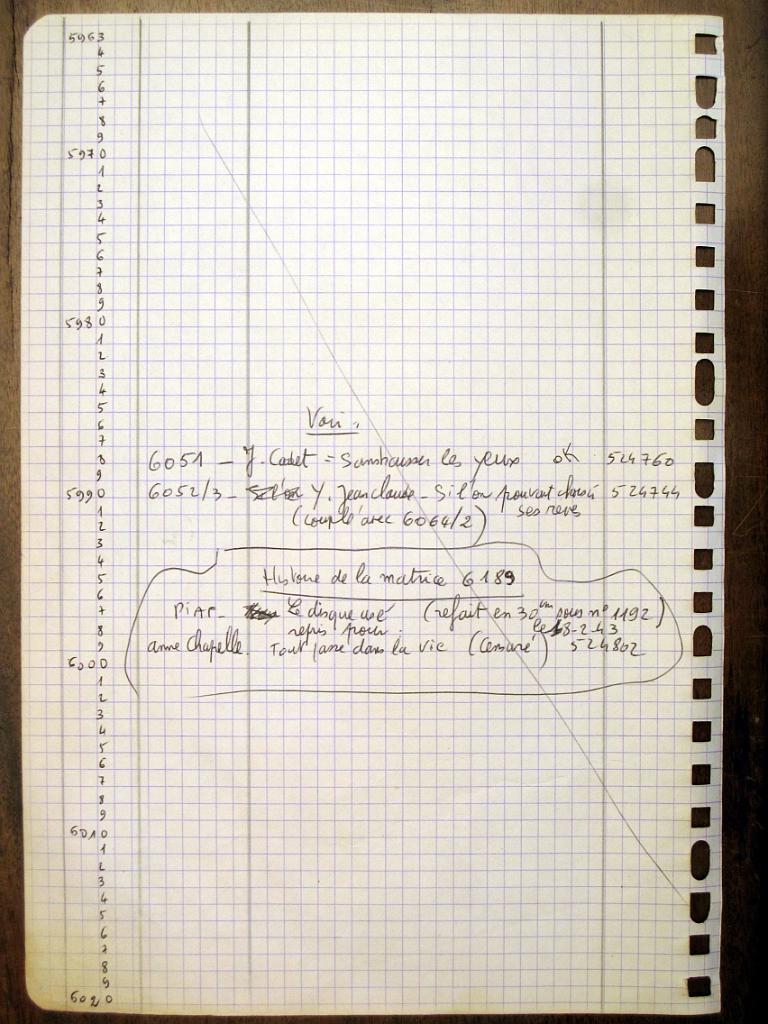 5963
4
5
6
7
8
9
5970
1
2
3
4
5
6
7
8
9
5980
1
2
3
4
5
6
7
8
9
5990
1
2
3
4
5
6
7
8
9
6000
1
2
3
4
5
6
7
8
9
6010
1
2
3
4
5
6
7
8
9
6020
Voir :
6051 - J. Cadet = Sans baisser les yeux ok 524760
6052/3 - Y. Jeanclaude - Si l'on pouvait choisir 524744
ses reves
(couplé avec 6064/2)
Histoire de la matrice 6189
PiAF - Le disque usé (refait en 30 cm sous n° 1192)
repris pour le 18-2-43
anne Chapelle. Tout passe dans la vie (Censuré) 524802